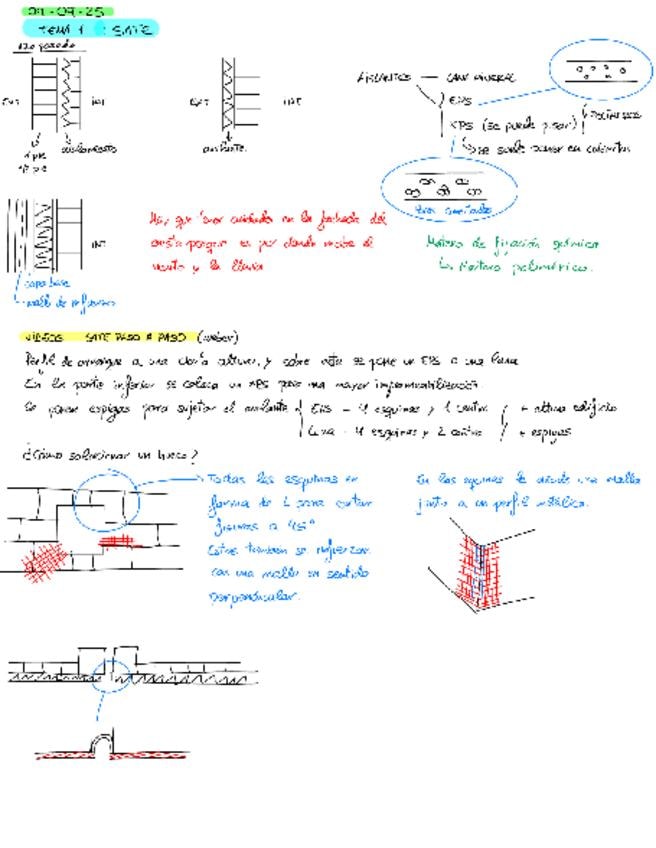 09-25
TEMA 1 : SATE
EXT INT
aislamiento
EXT INT
aislante
AISLANTES — LANA MINERAL
EPS
XPS (se puede pisar)
se suele poner en cubiertas
poros conectados
INT
capa base
malla de refuerzo
Hay que tener cuidado en la fachada del
porque es por donde recibe el
viento y la lluvia
Mortero de fijación química
Mortero polimérico.
VIDEOS SATE PASO A PASO (weber)
Perfil de arranque a una cierta altura, y sobre este se pone un EPS o una lana
En la parte inferior se coloca un XPS para una mayor impermeabilización.
Se ponen espigas para sujetar el aislante
EPS – 4 esquinas y 1 centro
+ altura edificio
Lana – 4 esquinas y 2 centro
+ espigas
¿Cómo solucionar un hueco?
Todas las esquinas en
forma de L para evitar
fisuras a 45°
Estas también se refuerzan
con una malla en sentido
perpendicular.
En las esquinas se una malla
junto a un perfil metálico.